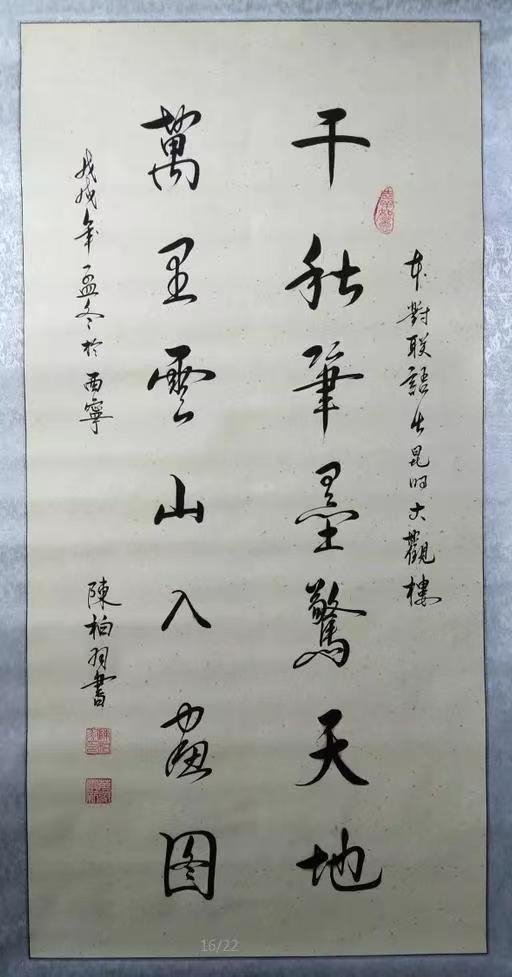 本對联語出昆明大觀樓
千秋筆墨驚天地
萬里雲山入畫图
戊戌年孟冬於西寧
陳柏羽書
16/22